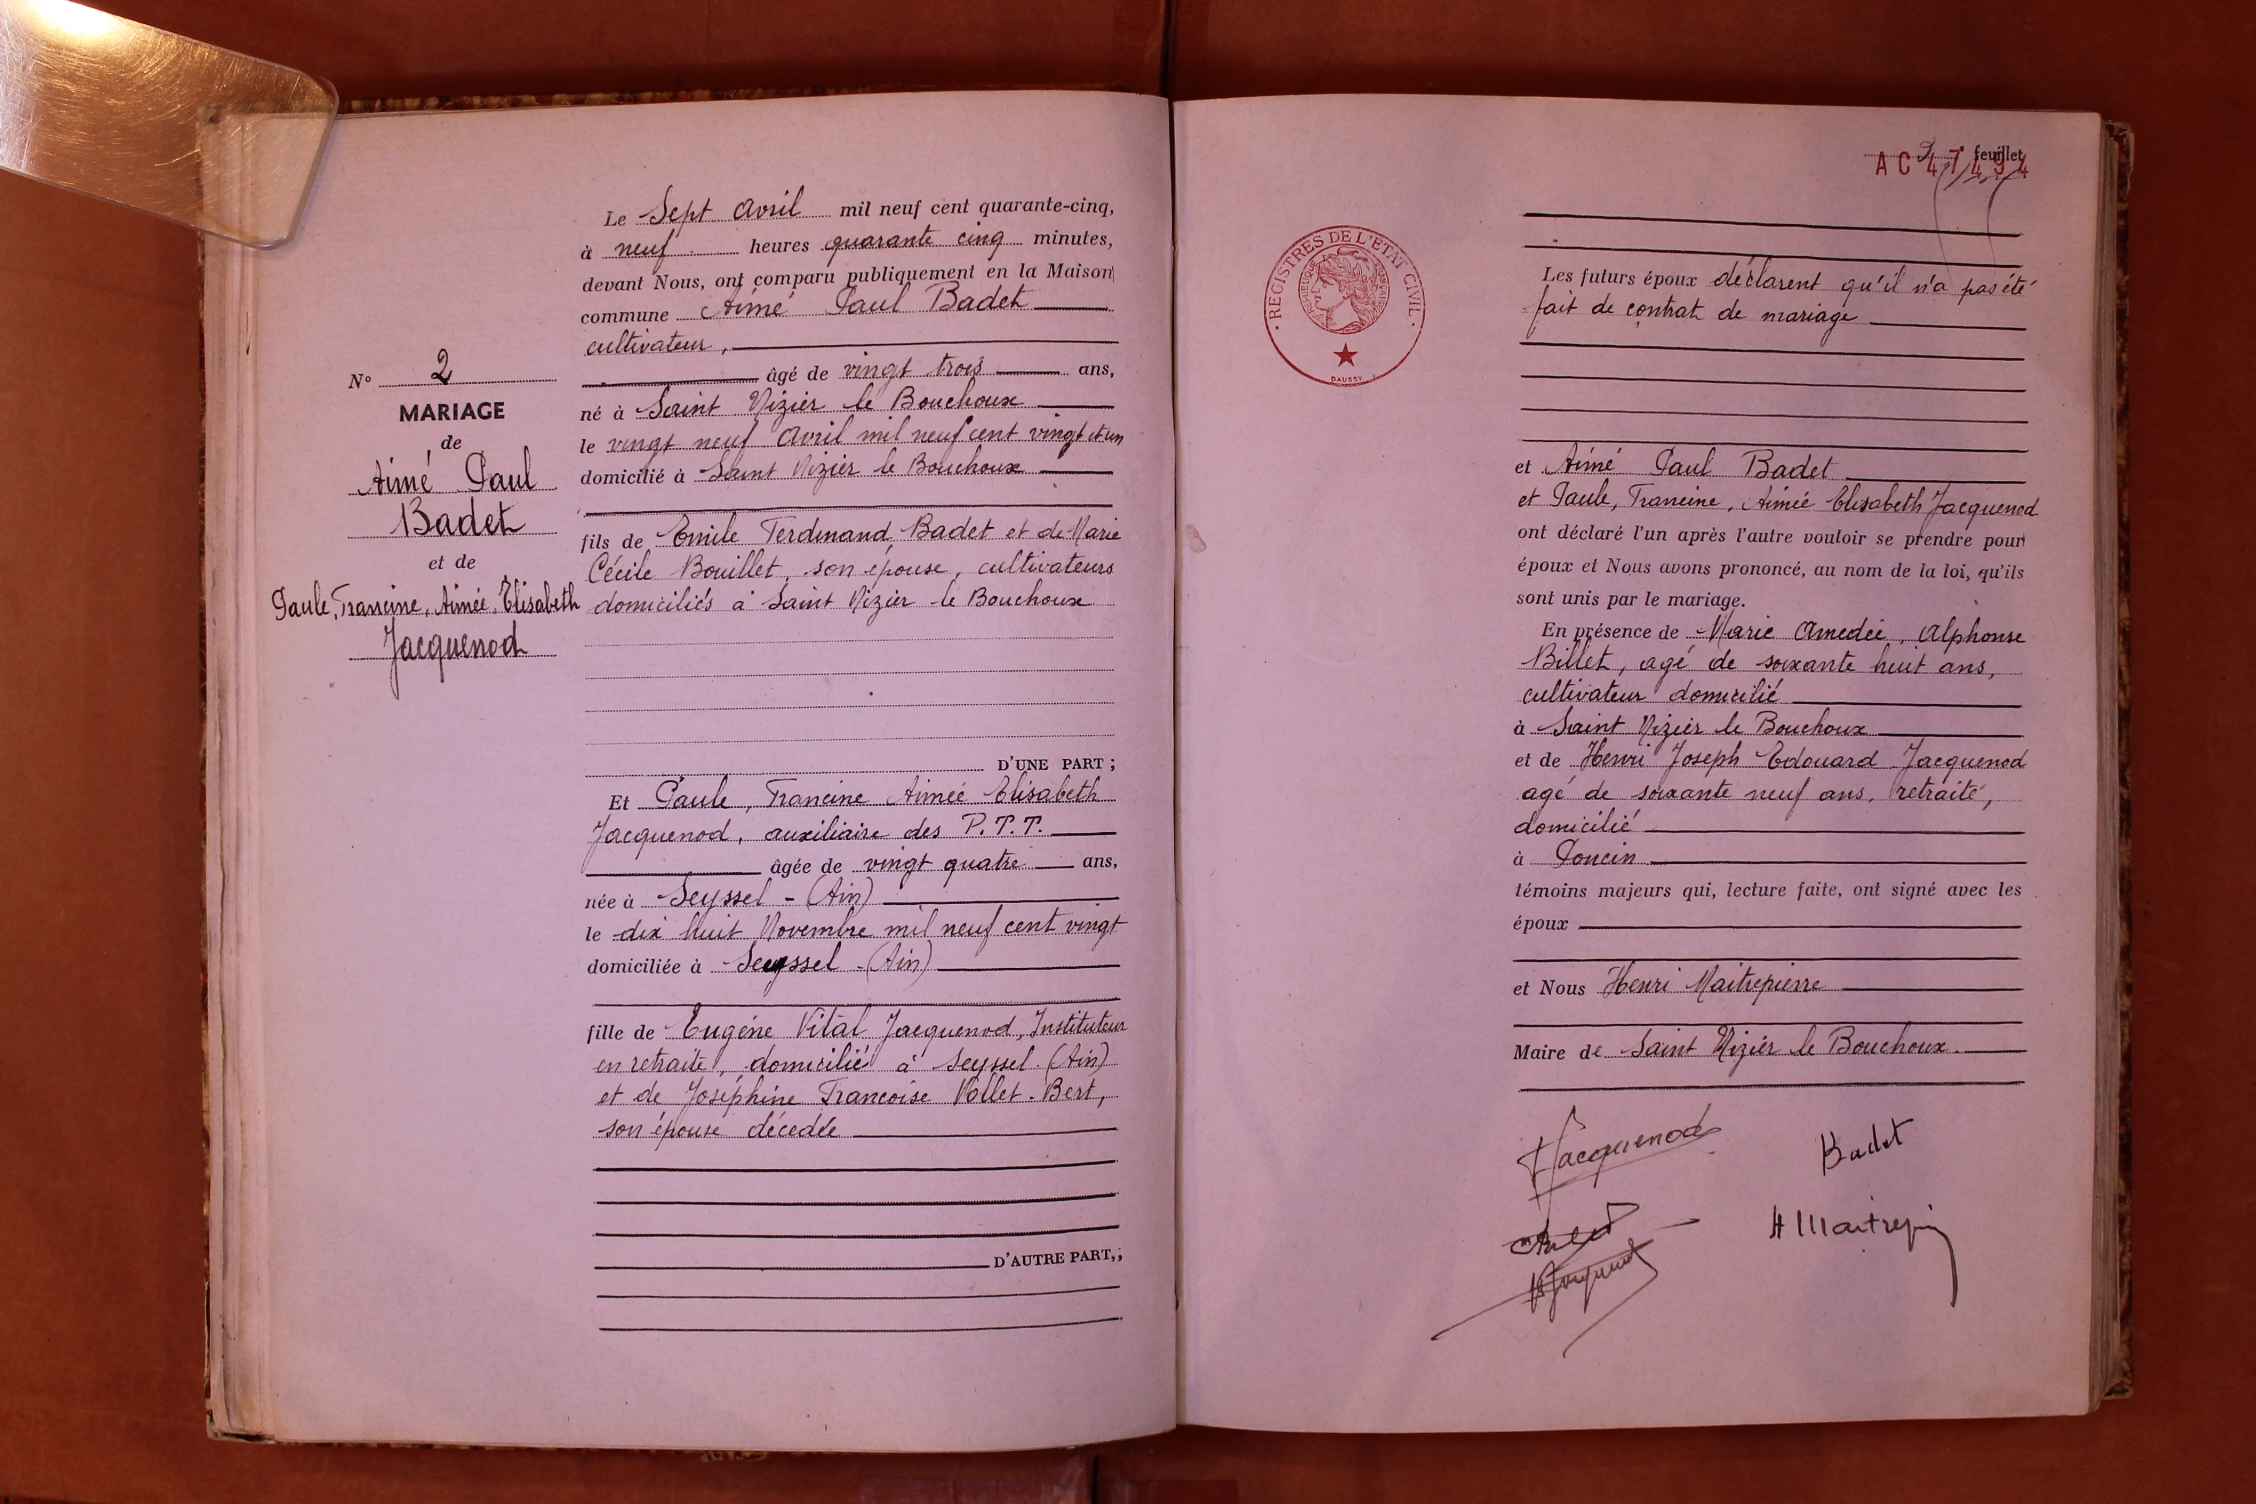 N° 2
MARIAGE
de
Aimé Paul
Badet
et de
Paule, Francine, Aimée, Elisabeth
Jacquenod
Le Sept Avril mil neuf cent quarante-cinq,
à neuf heures quarante cinq minutes,
devant Nous, ont comparu publiquement en la Maison
commune Aimé Paul Badet
cultivateur,
âgé de vingt trois ans,
né à Saint Nizier le Bouchoux
le vingt neuf Avril mil neuf cent vingt et un
domicilié à Saint Nizier le Bouchoux
fils de Emile Ferdinand Badet et de Marie
Cécile Bouillet, son épouse, cultivateurs
domiciliés à Saint Nizier le Bouchoux
D'UNE PART ;
Et Paule, Francine Aimée Elisabeth
Jacquenod, auxiliaire des P.T.T.
âgée de vingt quatre ans,
née à Seyssel - (Ain)
le dix huit Novembre mil neuf cent vingt
domiciliée à Seyssel - (Ain)
fille de Eugène Vital Jacquenod, Instituteur
en retraite, domicilié à Seyssel (Ain)
et de Joséphine Françoise Vollet-Bert,
son épouse décédée
D'AUTRE PART,;
feuillet
AC 47494
REGISTRES DE L'ETAT CIVIL
DAUSSY
Les futurs époux déclarent qu'il n'a pas été
fait de contrat de mariage
et Aimé Paul Badet
et Paule, Francine, Aimée Elisabeth Jacquenod
ont déclaré l'un après l'autre vouloir se prendre pour
époux et Nous avons prononcé, au nom de la loi, qu'ils
sont unis par le mariage.
En présence de Marie Amedée, Alphonse
Billet, agé de soixante huit ans,
cultivateur domicilié
à Saint Nizier le Bouchoux
et de Henri Joseph Edouard Jacquenod
agé de soixante neuf ans, retraité,
domicilié
à Poncin
témoins majeurs qui, lecture faite, ont signé avec les
époux
et Nous Henri Maitrepierre
Maire de Saint Nizier le Bouchoux.
Jacquenod
Badet
H Maitrepi